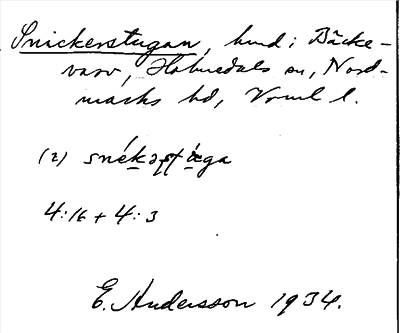 Snickerstugan, hmd i Bäcke-
varv, Holmedals sn, Nord-
marks hd, Vrml l.
(2) snékəʂtæga
4:16 + 4:3
E. Andersson 1934.